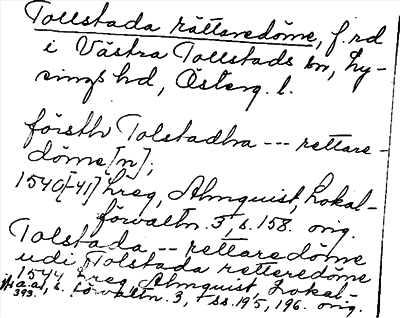 Tollstada rättaredöme, f. rd
i Västra Tollstads sn, Ly-
sings hd, Österg. l.
försth Tolstadha --- rettare-
döme [n];
1540[-41] Lreg, Almquist, Lokal-
förvaltn. 3, s. 158. orig.
Tolstada -- rettaredöme
udi Tolstada retteredöme
1544 Lreg Almquist, Lokal-
förvaltn. 3, ss. 195, 196. orig.
a.a., s.
393.